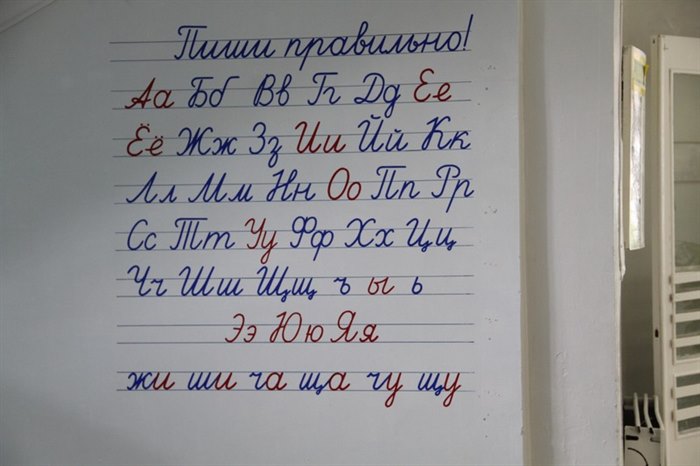 Пиши правильно!
Аа Бб Вв Гг Дд Ее
Ёё Жж Зз Ии Йй Кк
Лл Мм Нн Оо Пп Рр
Сс Тт Уу Фф Хх Цц
Чч Шш Щщ ъ ы ь
Ээ Юю Яя
жи ши ча ща чу щу